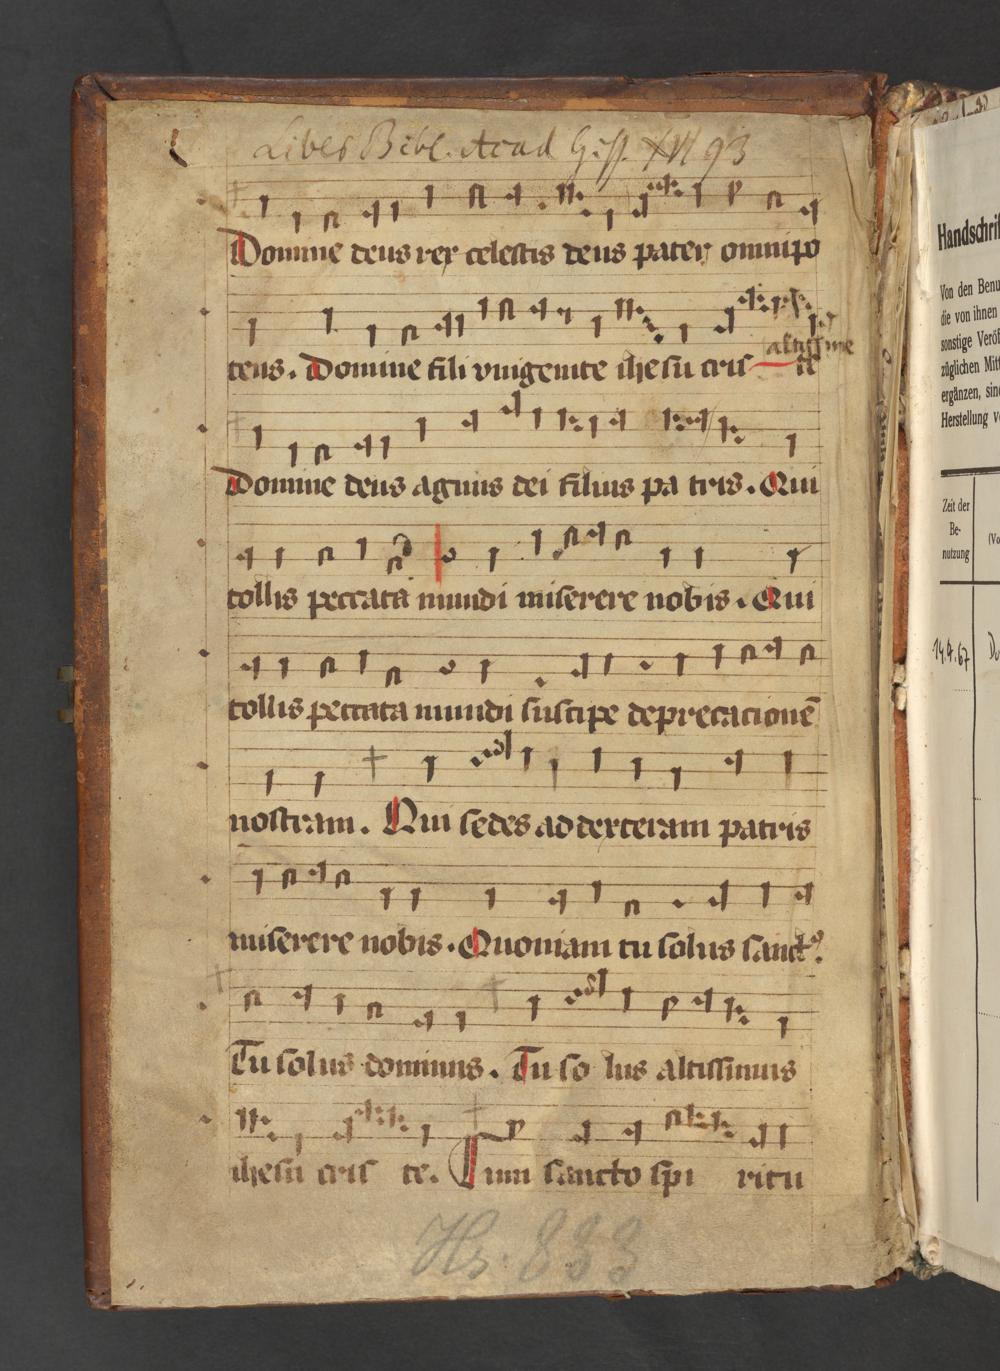 Liber Bibl. Acad Giss. XVI 93
Domine deus rex celestis deus pater omnipo
tens. Domine fili vnigenite ihesu cris te
altissime
Domine deus agnus dei filius pa tris. Qui
tollis peccata mundi miserere nobis. Qui
tollis peccata mundi suscipe deprecacionē
nostram. Qui sedes ad dexteram patris
miserere nobis. Quoniam tu solus sanctꝰ.
Tu solus dominus. Tu so lus altissimus
ihesu cris te. Cum sancto spi ritu
Hs. 833
Handschrif
Von den Benu
die von ihnen
sonstige Veröf
züglichen Mitt
ergänzen, sind
Herstellung v
Zeit der
Be-
nutzung
(Vo
14.9.67